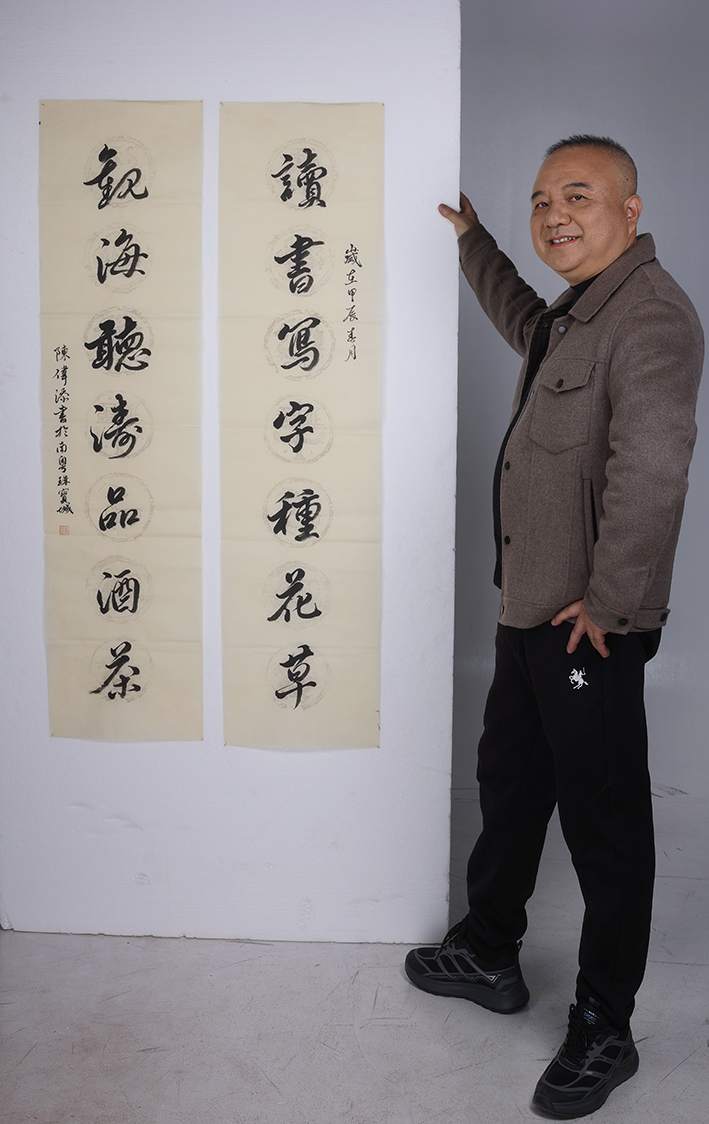 讀書寫字種花草
歲在甲辰春月
觀海聽濤品酒茶
陳偉添書於南粵珠寶城